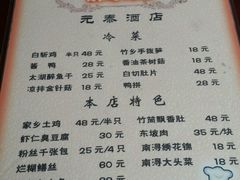 元泰酒店
冷菜
白斩鸡 半只48元 竹乡手拨笋 18元
酱鸭 28元 香油茶树菇 18元
太湖醉鱼干 25元 白切肚片 48元
凉拌金针菇 16元 鸭拼 28元
本店特色
家乡土鸡 48元/半只 竹筒飘香肚 48元
虾仁臭豆腐 30元 东坡肉 35元/块
粉丝千张包 25元/4只 南浔绣花锦 18元
烂糊鳝丝 60元 南浔大头菜 18元